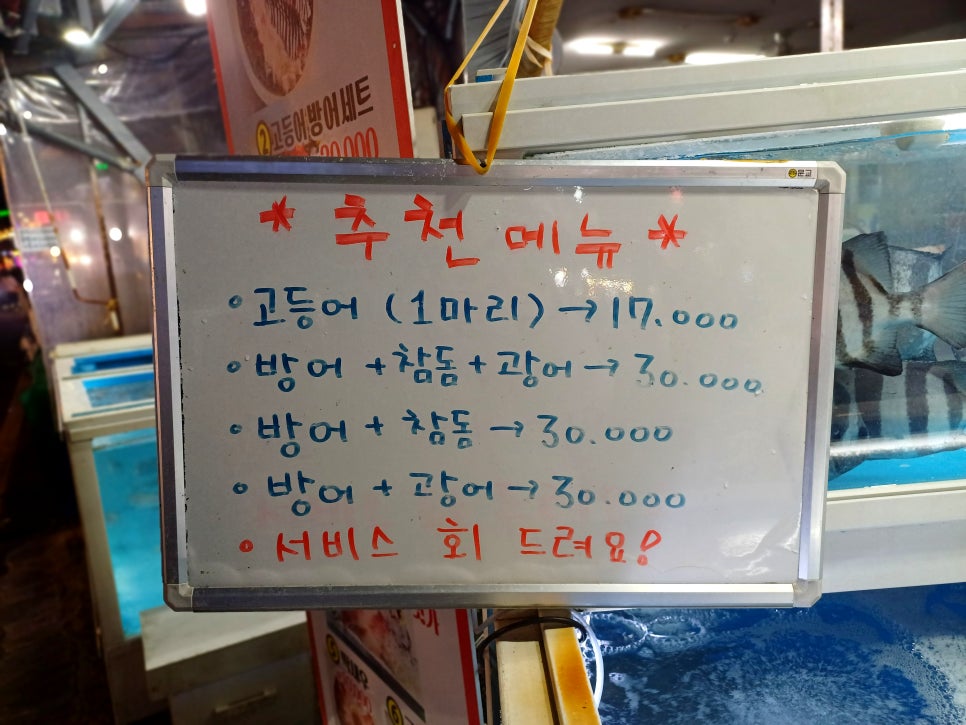 ② 고등어방어세트
문교
* 추천 메뉴 *
• 고등어 (1마리) → 17.000
• 방어 + 참돔 + 광어 → 30.000
• 방어 + 참돔 → 30.000
• 방어 + 광어 → 30.000
• 서비스 회 드려요!